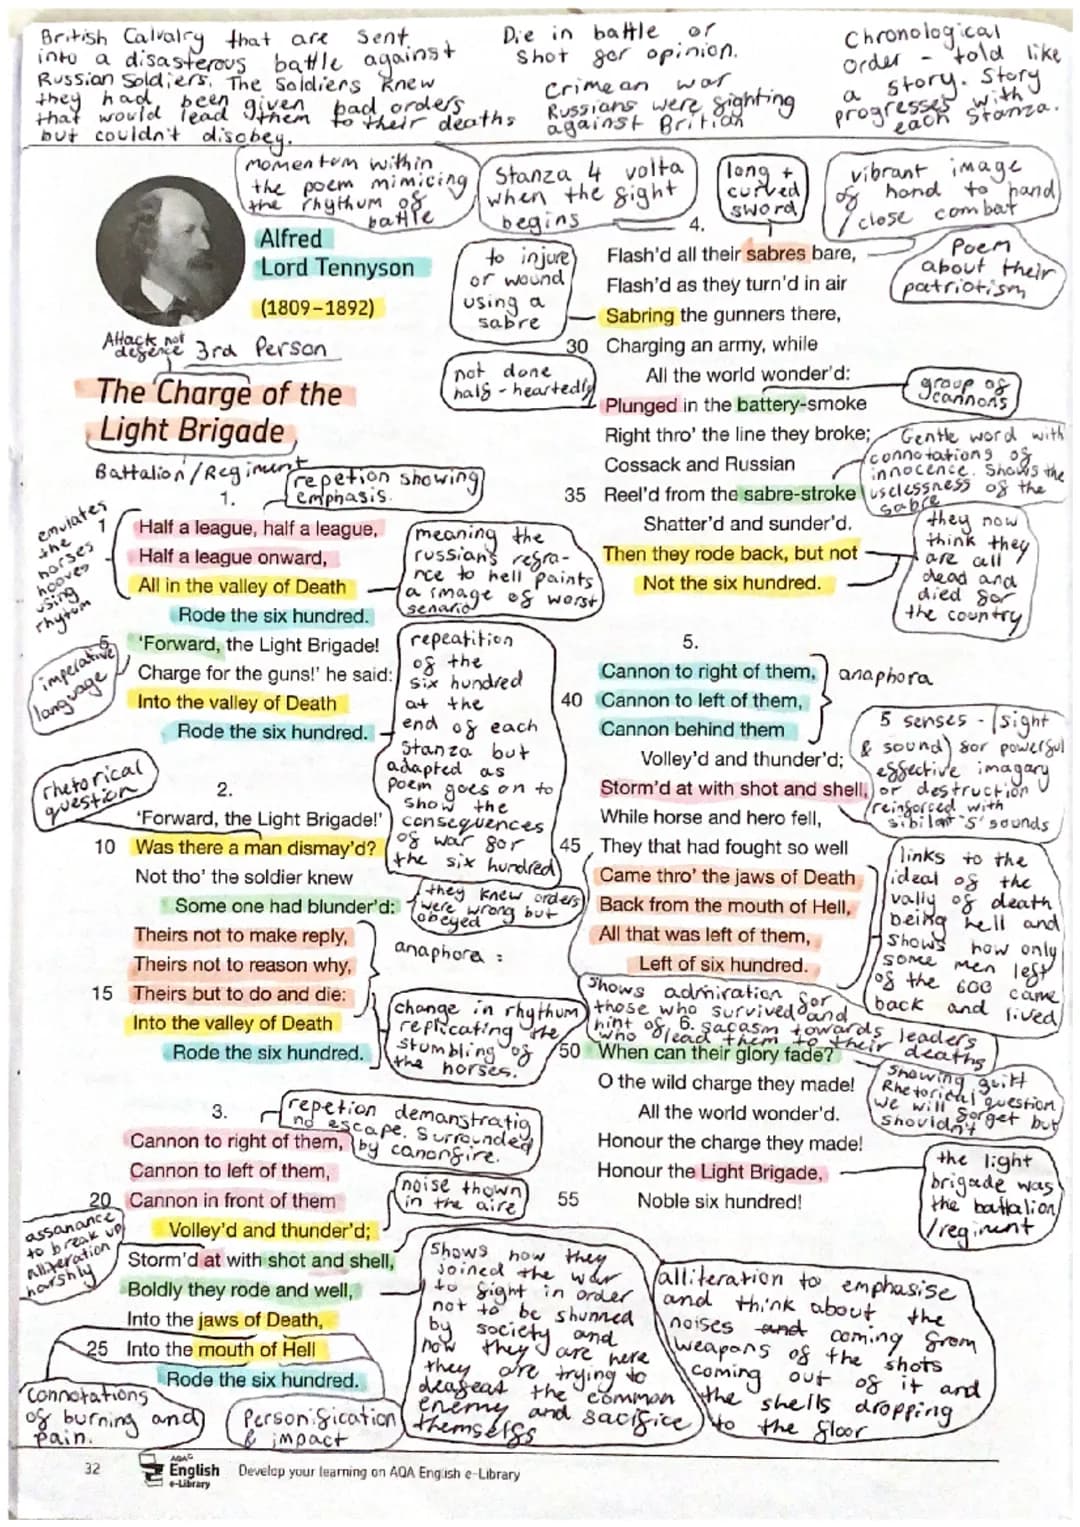 British Calvalry that are sent
into a disasterous battle against
Russian Soldiers. The Soldiers knew
they had been given bad orders
that would lead them to their deaths
but couldn't disobey.
Die in battle or
Shot for opinion.
Crimean war
Russians were fighting
against Britian
Chronological
order - told like
a story. Story
progresses with
each Stanza.
momentum within
the poem mimicing
the rhythum of
battle
Stanza 4 volta
when the fight
begins
long +
curved
sword
vibrant image
of hand to hand
/ close combat
Alfred
Lord Tennyson
(1809–1892)
Attack not
defence
3rd Person
The Charge of the
Light Brigade
Battalion/Regiment
repetion showing
emphasis.
1.
emulates
the
horses
hooves
using
rhytum
1 Half a league, half a league,
Half a league onward,
All in the valley of Death
Rode the six hundred.
5 'Forward, the Light Brigade!
Charge for the guns!' he said:
Into the valley of Death
Rode the six hundred.
meaning the
russian's refra-
nce to hell paints
a image of worst
senario
imperative
language
repeatition
of the
six hundred
at the
end of each
Stanza but
adapted as
poem goes on to
show the
consequences
of war for
the six hundred
rhetorical
question
2.
'Forward, the Light Brigade!'
10 Was there a man dismay'd?
Not tho' the soldier knew
Some one had blunder'd:
Theirs not to make reply,
Theirs not to reason why,
15 Theirs but to do and die:
Into the valley of Death
Rode the six hundred.
they knew orders
were wrong but
obeyed
anaphora :
change in rhythum
replicating the
stumbling of
the horses.
3.
repetion demanstratig
no escape. Surrounded
by canonfire.
Cannon to right of them,
Cannon to left of them,
20 Cannon in front of them
Volley'd and thunder'd;
Storm'd at with shot and shell,
Boldly they rode and well,
Into the jaws of Death,
25 Into the mouth of Hell
Rode the six hundred.
noise thown
in the aire
assanance
to break up
alliteration
harshly
Connotations
of burning and
pain.
Personification
& impact
Shows how they
joined the war
to fight in order
not to be shunned
by society and
now they are here
they are trying to
deafeat the common
enemy and sacifice
themselfs
alliteration to emphasise
and think about the
noises and coming from
weapons of the shots
coming out of it and
the shells dropping
to the floor
4.
Flash'd all their sabres bare,
Flash'd as they turn'd in air
Sabring the gunners there,
30 Charging an army, while
All the world wonder'd:
Plunged in the battery-smoke
Right thro' the line they broke;
Cossack and Russian
35 Reel'd from the sabre-stroke
Shatter'd and sunder'd.
Then they rode back, but not
Not the six hundred.
to injure
or wound
using a
sabre
Poem
about their
patriotism
not done
half-heartedly
group of
cannons
Gentle word with
connotations of
innocence. Shows the
uselessness of the
sabre
they now
think they
are all
dead and
died for
the country
5.
Cannon to right of them,
40 Cannon to left of them,
Cannon behind them
Volley'd and thunder'd;
Storm'd at with shot and shell,
While horse and hero fell,
45 They that had fought so well
Came thro' the jaws of Death
Back from the mouth of Hell,
All that was left of them,
Left of six hundred.
anaphora
5 senses - sight
& sound for powerful
effective imagary
or destruction
/reinforced with
sibilant 's' sounds
links to the
ideal of the
vally of death
being hell and
shows how only
some men left
of the 600 came
back and lived
shows admiration for
those who survived and
hint of 6. sacasm towards leaders
who lead them to their deaths
50 When can their glory fade?
O the wild charge they made!
All the world wonder'd.
Honour the charge they made!
Honour the Light Brigade,
55 Noble six hundred!
Showing guilt
Rhetorical question
we will forget but
shouldn't
the light
brigade was
the battalion
/regiment
32
AQA
English
e-Library
Develop your learning on AQA English e-Library